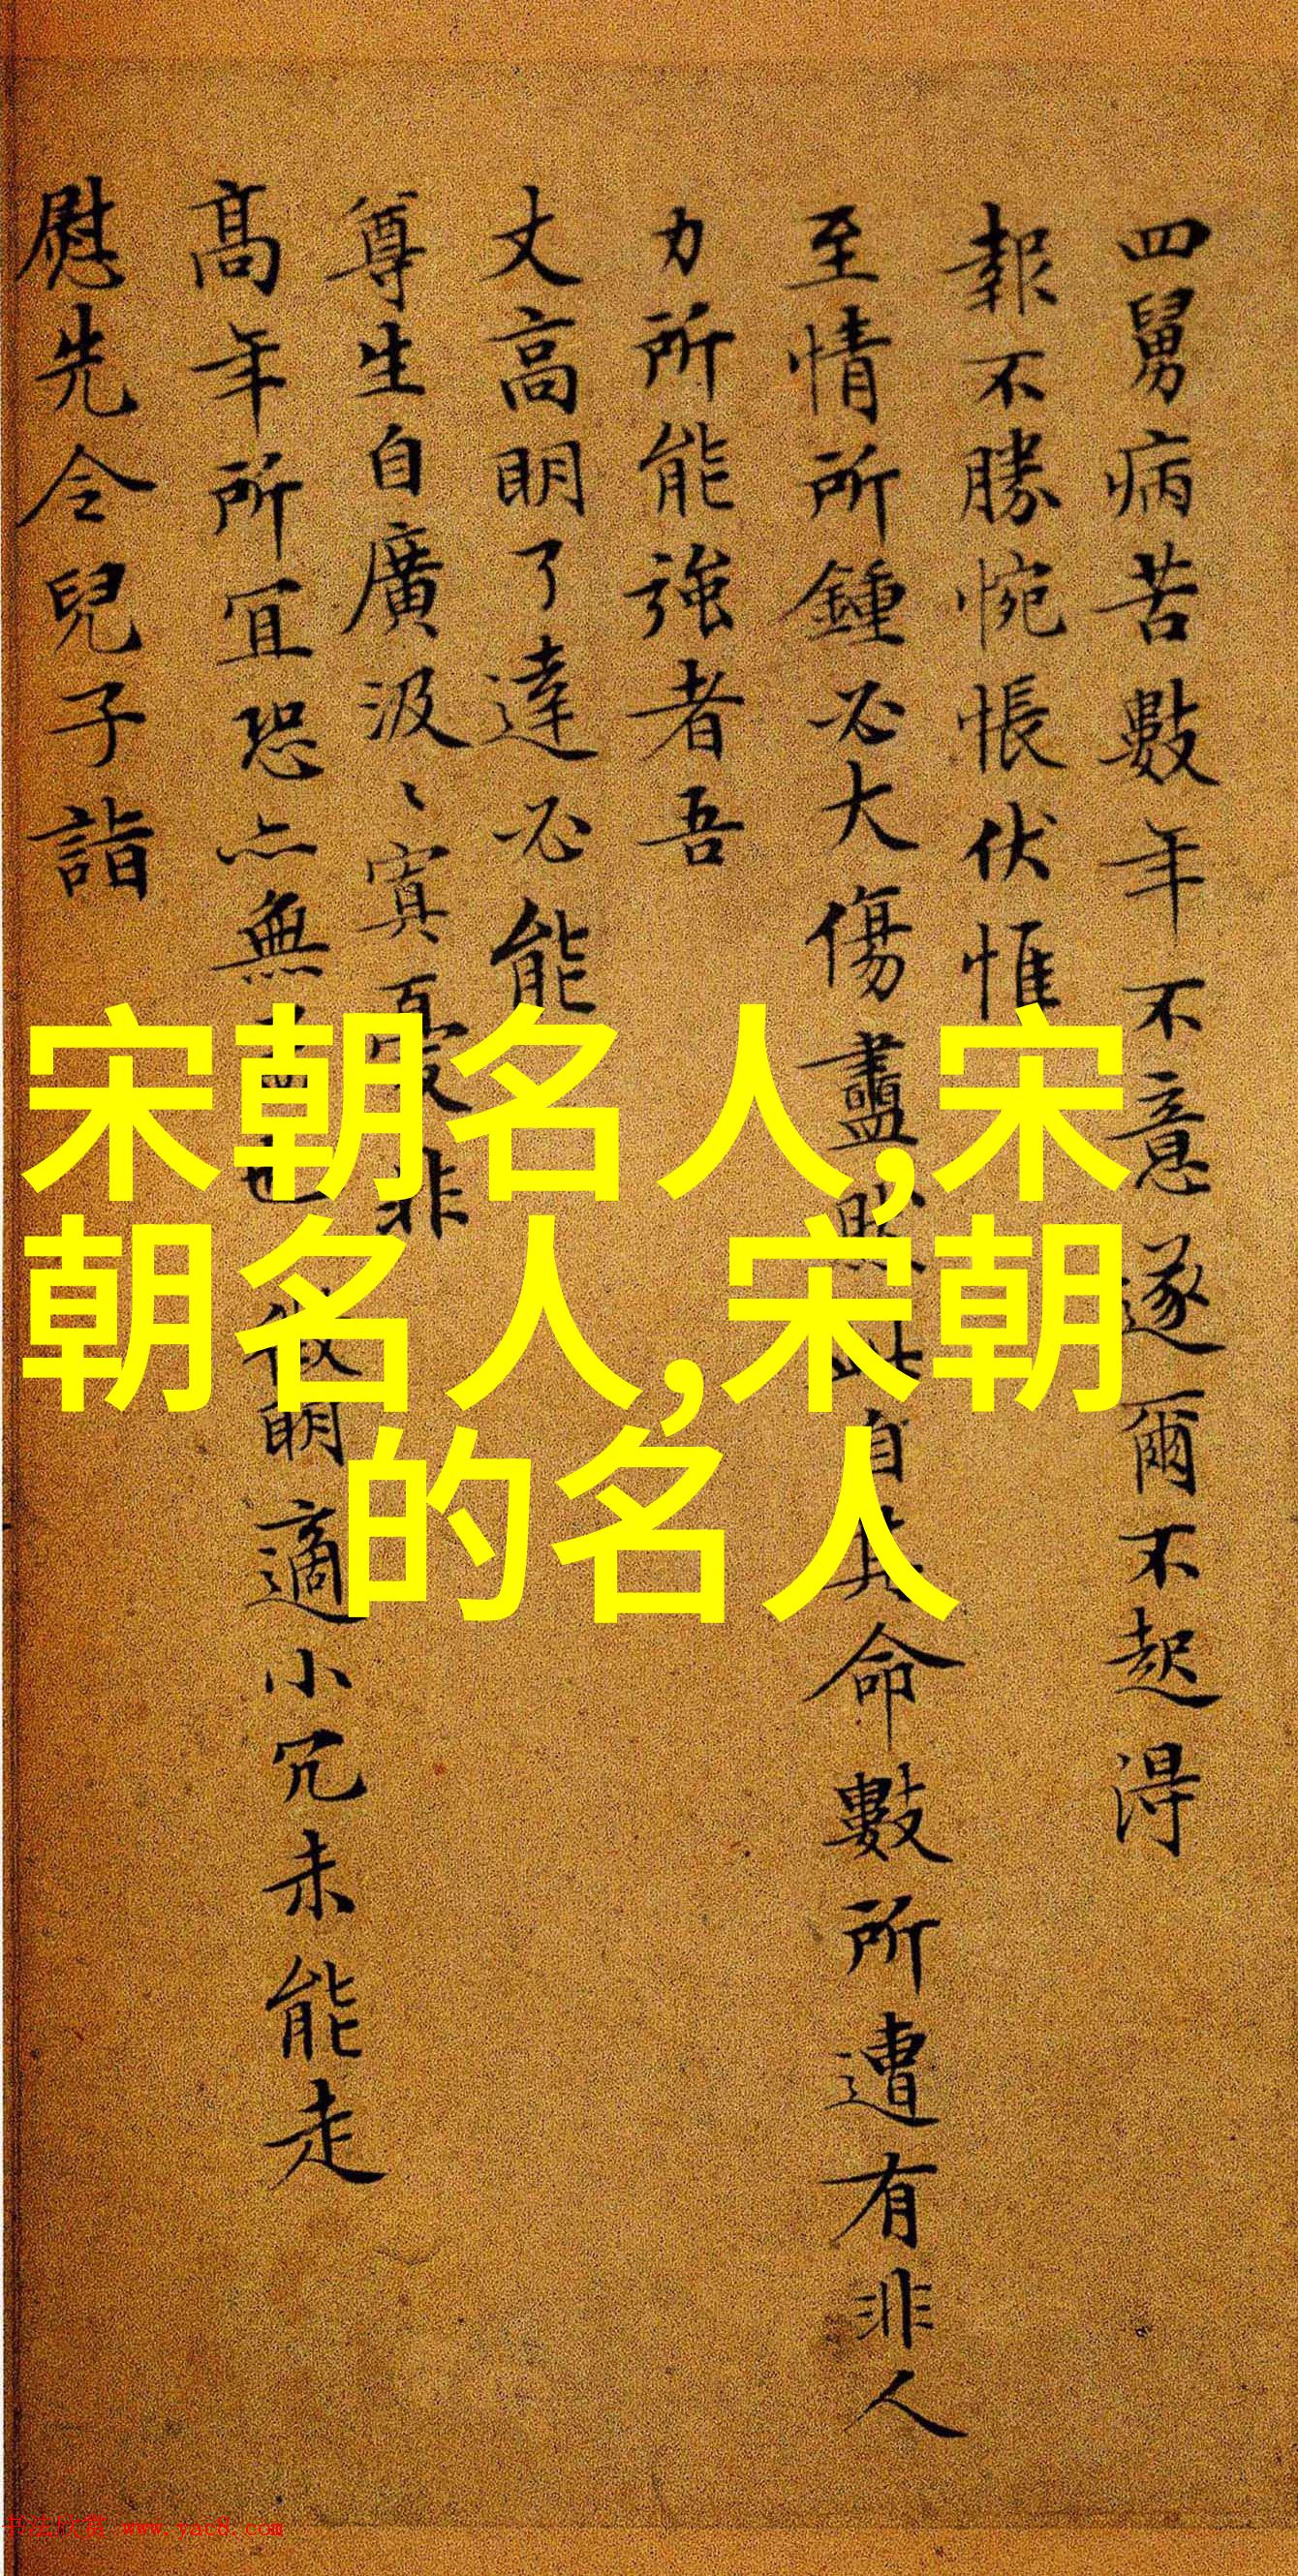 四舅病苦數年不意遂爾不起得
報不勝惋悵伏惟
至情所鍾必大傷盡
自其命數所遭有非人
力所能強者吾
丈高明了達必能
尊生自廣汲〻寘憂非
高年所宜恐亦無
明適小冗未能走
慰先令兒子詣
宋朝名人,宋
朝名人,宋朝
的名人
书法欣赏 www.yac8.com